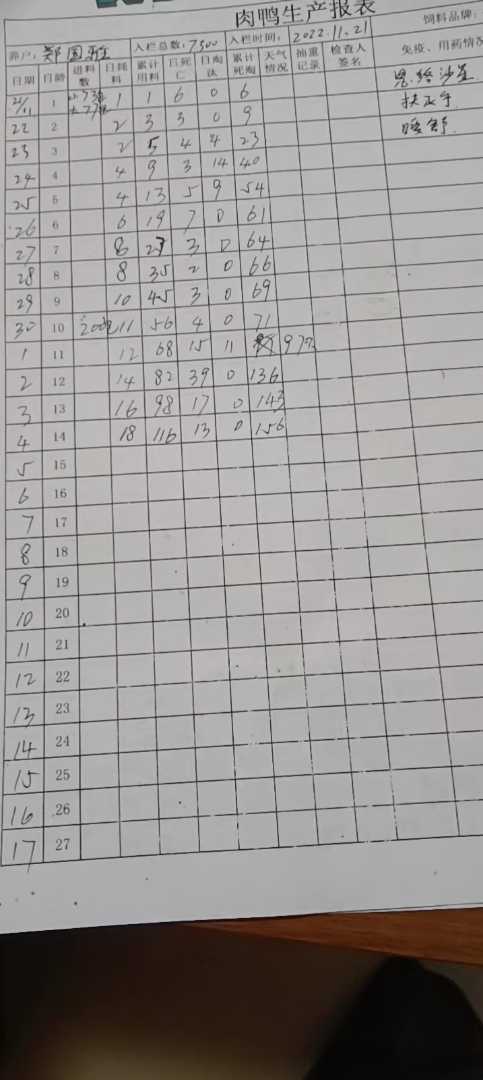 肉鸭生产报表
养户: 郑国雅 入栏总数: 7300 入栏时间: 2022.11.21 饲料品牌:
日期 日龄 进料数 日耗料 累计用料 日死亡 日淘汰 累计死淘 天气情况 抽重记录 检查人签名 免疫、用药情
21/11 1 1 1 6 0 6 恩诺沙星
22 2 2 3 3 0 9
23 3 2 5 4 4 23
24 4 4 9 3 14 40
25 5 4 13 5 9 54
26 6 6 19 7 0 61
27 7 8 27 3 0 64
28 8 8 35 2 0 66
29 9 10 45 3 0 69
30 10 11 56 4 0 71
1 11 12 68 15 11 97
2 12 14 82 39 0 136
3 13 16 98 17 0 143
4 14 18 116 13 0 156
5 15
6 16
7 17
8 18
9 19
10 20
11 21
12 22
13 23
14 24
15 25
16 26
17 27